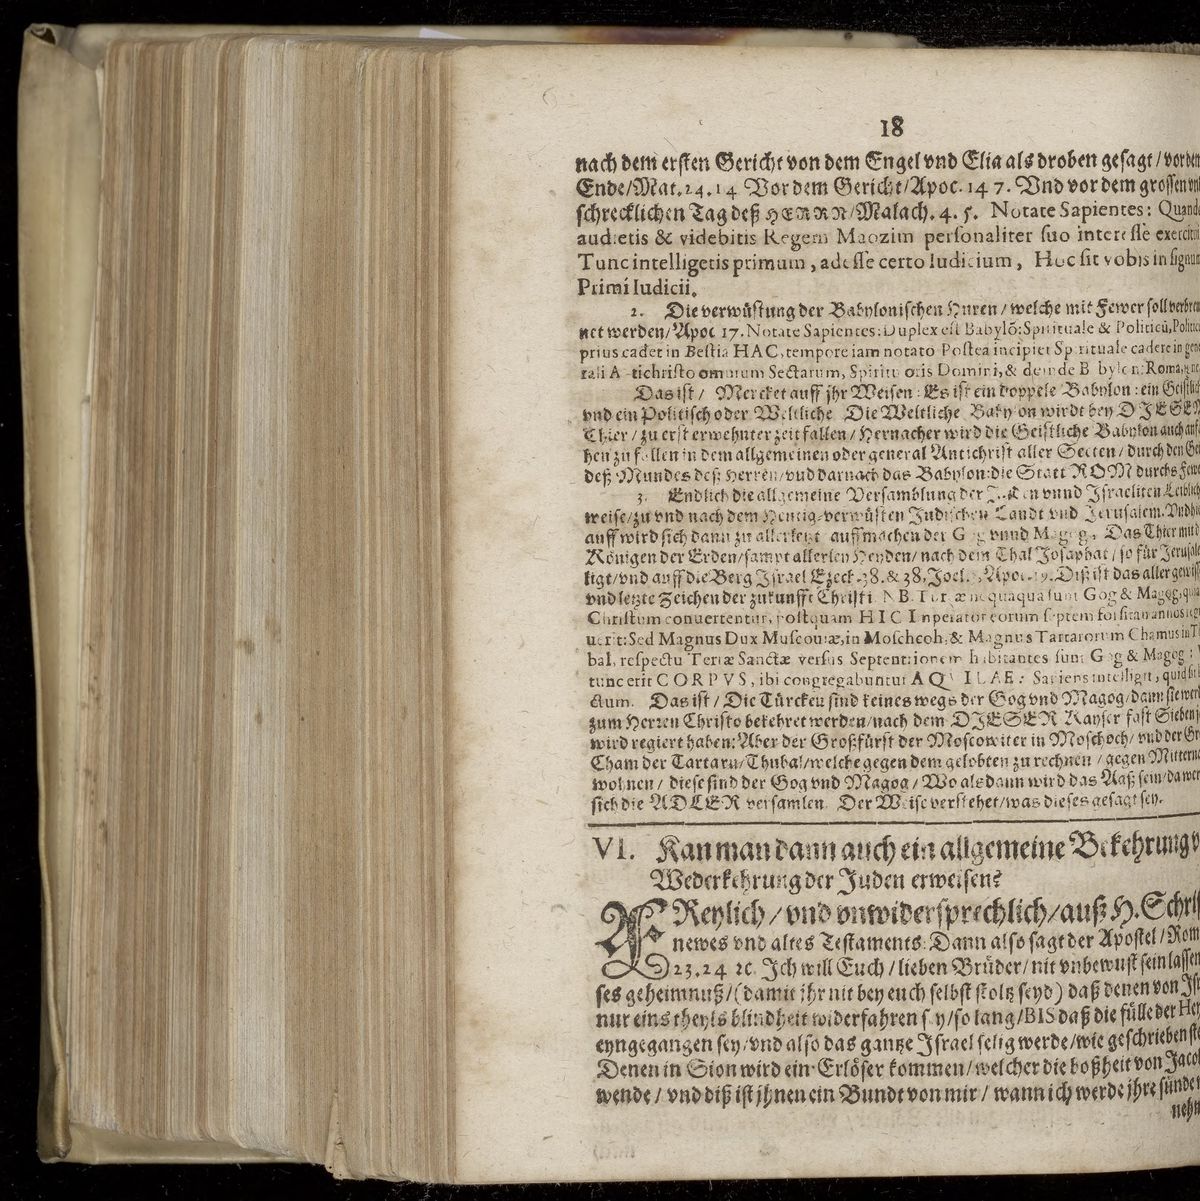 18
nach dem ersten Gericht von dem Engel vnd Elia als droben gesagt / vor dem
Ende/Mat. 24. 14 Vor dem Gericht/Apoc. 14 7. Vnd vor dem grossen vnd
schrecklichen Tag deß HERRN/Malach. 4. 5. Notate Sapientes: Quando
audietis & videbitis Regem Maozim personaliter suo interesse exercitui
Tunc intelligetis primum, adesse certo Iudicium, Hoc sit vobis in signum
Primi Iudicii.
2. Die verwüstung der Babylonischen Huren / welche mit Fewer soll verbren
net werden/Apoc 17. Notate Sapientes: Duplex est Babylō: Spirituale & Politicū, Politice
prius cadet in Bestia HAC, tempore iam notato Postea incipiet Spirituale cadere in gene
rali Antichristo omnium Sectarum, Spiritu oris Domini, & deinde Babylon: Roma,
Das ist / Mercket auff jhr Weisen: Es ist ein doppele Babylon: ein Geistlich
vnd ein Politisch oder Weltliche Die Weltliche Babylon wirdt bey DIESEN
Thier / zu erst erwehnter zeit fallen / Hernacher wird die Geistliche Babylon auch anfa
hen zu fallen in dem allgemeinen oder general Antichrist aller Secten / durch den Gei
deß Mundes deß Herren/vnd darnach das Babylon: die Statt ROM durchs Fewe
3. Endlich die allgemeine Versamblung der Juden vnnd Israeliten Leiblich
weise/zu vnd nach dem Heutig-verwüsten Judischen Landt vnd Jerusalem. Vnd
auff wird sich dann zu allerletzt auffmachen der Gog vnnd Magog, Das Thier mit
Königen der Erden/sampt allerley Heyden/nach dem Thal Josaphat / so für Jerusale
ligt/vnd auff die Berg Israel Ezeck. 38. & 38, Joel. Apoc. 19. Diß ist das aller gewiss
vnd letzte Zeichen der zukunfft Christi. NB. Turcæ nequaquã sunt Gog & Magog, quia
Christum conuertentur, postquam HIC Imperator eorum septem forsitan annos
uerit: Sed Magnus Dux Muscouiæ, in Moscheoh, & Magnus Tartarorum Chamus in Tu
bal, respectu Terræ Sanctæ versus Septentrionem habitantes sunt Gog & Magog:
tunc erit CORPVS, ibi congregabuntur AQVILAE: Sapiens intelligit, quid
ctum. Das ist / Die Türcken sind keines wegs der Gog vnd Magog/dann sie werd
zum Herren Christo bekehret werden/nach dem DIESER Kayser fast Sieben
wird regiert haben: Aber der Großfürst der Moscowiter in Moschoch/vnd der Gro
Cham der Tartarn/Thubal/welche gegen dem gelobten zu rechnen / gegen Mitterna
wohnen / diese sind der Gog vnd Magog / Wo alsdann wird das Aaß sein/da wer
sich die ADLER versamlen. Der Weise verstehet/was dieses gesagt sey.
VI. Kan man dann auch ein allgemeine Bekehrung
Wederkehrung der Juden erweisen?
FReylich / vnd vnwidersprechlich/auß H. Schrif
newes vnd altes Testaments: Dann also sagt der Apostel/Rom
23. 24 ꝛc. Jch will Euch / lieben Brüder / nit vnbewust sein lassen
ses geheimnuß/(damit jhr nit bey euch selbst stoltz seyd) daß denen von Is
nur eins theyls blindheit widerfahren sey/so lang/BIS daß die fülle der Hey
eyngegangen sey/vnd also das gantze Israel selig werde/wie geschrieben ste
Denen in Sion wird ein Erlöser kommen/welcher die boßheit von Jacob
wende / vnd diß ist jhnen ein Bundt von mir / wann ich werde jhre sünde
nehm